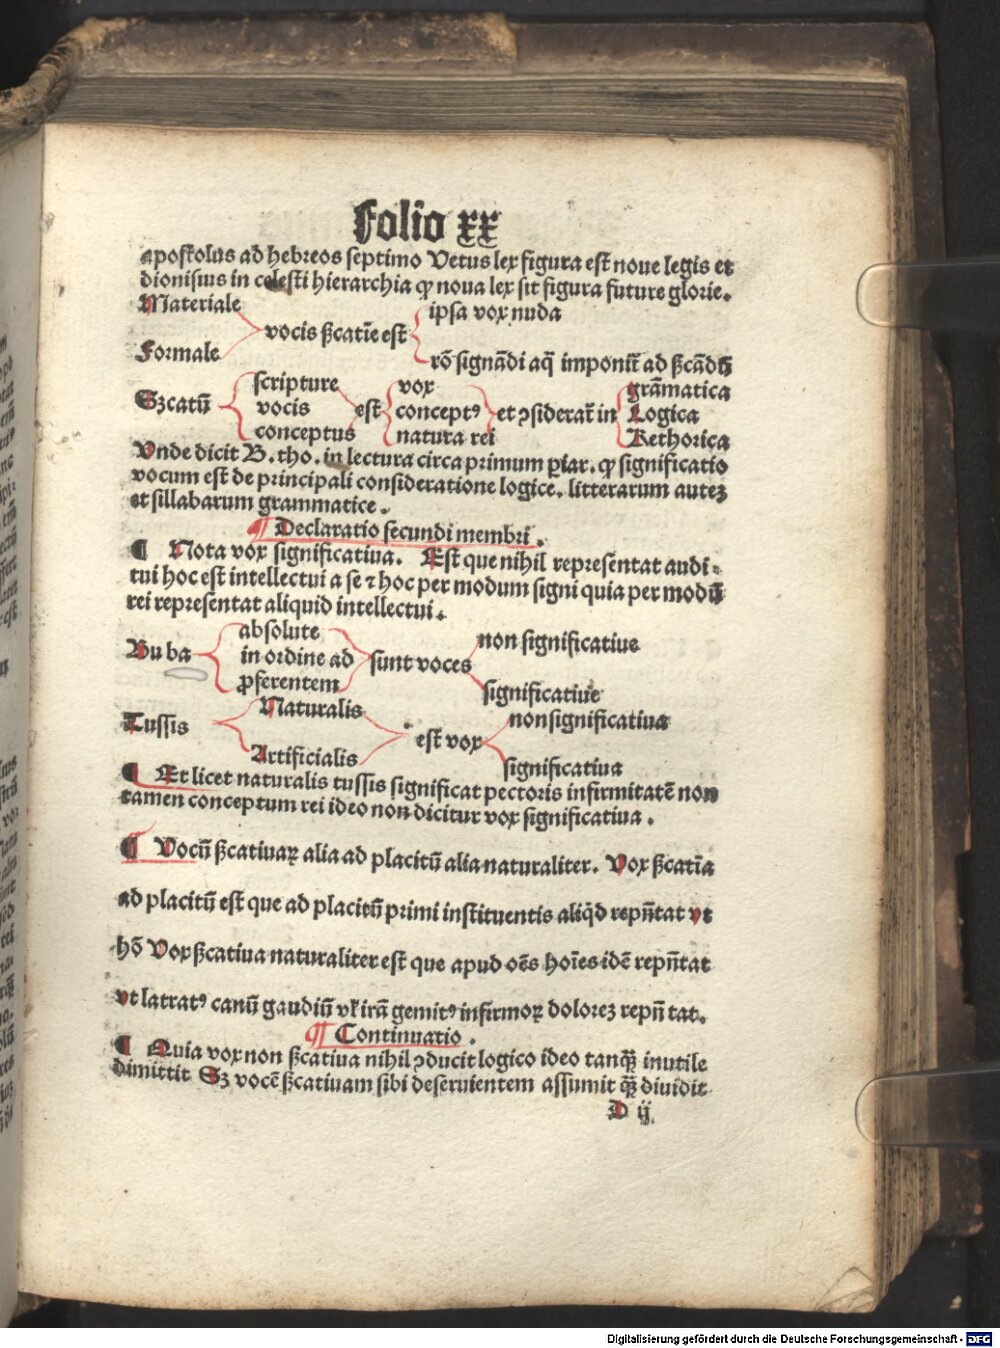 Folio xx
apostolus ad hebreos septimo Vetus lex figura est noue legis et
dionisius in celesti hierarchia ꝙ noua lex sit figura future glorie.
Materiale
vocis ßcatiōe est
ipsa vox nuda
Formale
rō signādi aq̄ imponit̄ ad ßcādū
Sꝫcatū
scripture
vocis
conceptus
est
vox
conceptꝰ
natura rei
et ꝯsiderat̄ in
grāmatica
Logica
Rethorica
Vnde dicit B. tho. in lectura circa primum ꝑiar. ꝙ significatio
vocum est de principali consideratione logice. litterarum auteꝫ
et sillabarum grammatice.
¶ Declaratio secundi membri.
¶ Nota vox significatiua. Est que nihil representat audi⸗
tui hoc est intellectui a se ⁊ hoc per modum signi quia per modū
rei representat aliquid intellectui.
Bu ba
absolute
in ordine ad
ꝓferentem
sunt voces
non significatiue
significatiue
Tussis
Naturalis
Artificialis
est vox
nonsignificatiua
significatiua
¶ Et licet naturalis tussis significat pectoris infirmitatē non
tamen conceptum rei ideo non dicitur vox significatiua.
¶ Vocū ßcatiuaꝝ alia ad placitū alia naturaliter. Vox ßcatīa
ad placitū est que ad placitū primi instituentis aliqd̄ repn̄tat vt
hō Vox ßcatiua naturaliter est que apud oēs hoīes idē repn̄tat
vt latratꝰ canū gaudiū vl̓ irā gemitꝰ infirmoꝝ doloreꝫ repn̄ tat.
¶ Continuatio.
¶ Quia vox non ßcatiua nihil ꝯducit logico ideo tanqꝫ̄ inutile
dimittit Sꝫ vocē ßcatiuam sibi deseruientem assumit qꝫ̄ diuidit
D ij
Digitalisierung gefördert durch die Deutsche Forschungsgemeinschaft - DFG